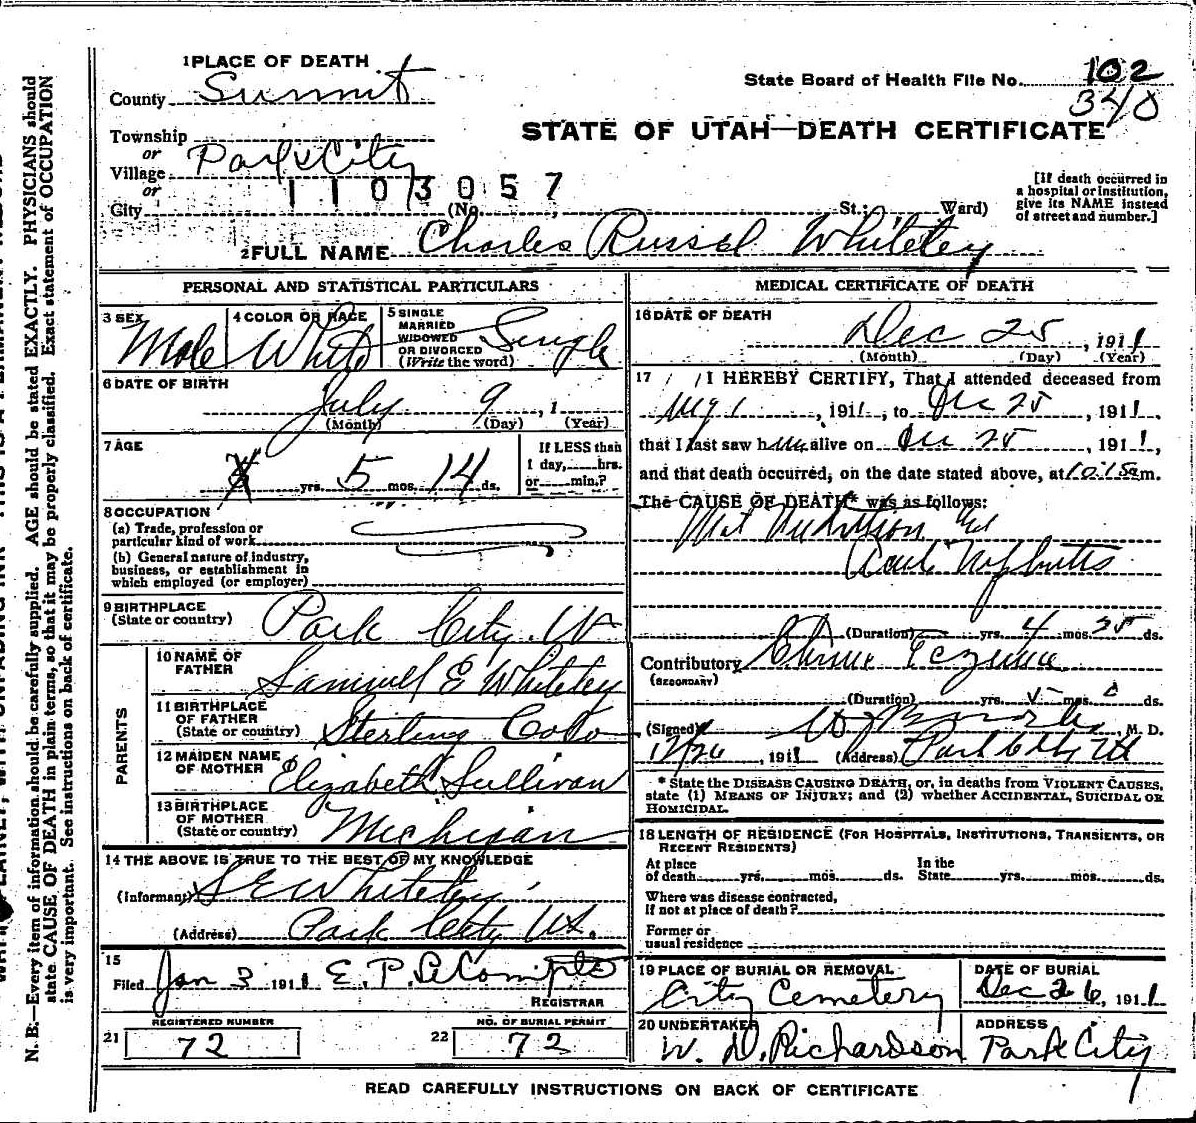 1 PLACE OF DEATH
County Summit
State Board of Health File No. 102
340
Township
or
Village Park City
or
City
1103057
(No. , St.; Ward)
STATE OF UTAH—DEATH CERTIFICATE
[If death occurred in
a hospital or institution,
give its NAME instead
of street and number.]
2 FULL NAME Charles Russel Whiteley
PERSONAL AND STATISTICAL PARTICULARS
3 SEX Male
4 COLOR OR RACE White
5 SINGLE
MARRIED
WIDOWED
OR DIVORCED
(Write the word) Single
6 DATE OF BIRTH
July 9, 1
(Month) (Day) (Year)
7 AGE
yrs. 5 mos. 14 ds.
If LESS than
1 day, hrs.
or min.?
8 OCCUPATION
(a) Trade, profession or
particular kind of work
(b) General nature of industry,
business, or establishment in
which employed (or employer)
9 BIRTHPLACE
(State or country) Park City Ut
PARENTS
10 NAME OF
FATHER Samuel E Whiteley
11 BIRTHPLACE
OF FATHER
(State or country) Sterling Colo
12 MAIDEN NAME
OF MOTHER Elizabeth Sullivan
13 BIRTHPLACE
OF MOTHER
(State or country) Michigan
14 THE ABOVE IS TRUE TO THE BEST OF MY KNOWLEDGE
(Informant) S E Whiteley
(Address) Park City Ut.
15
Filed Jan 3 1911 E. P. LeCompte
REGISTRAR
REGISTERED NUMBER
21 72
NO. OF BURIAL PERMIT
22 72
MEDICAL CERTIFICATE OF DEATH
16 DATE OF DEATH
Dec 25, 1911
(Month) (Day) (Year)
17 I HEREBY CERTIFY, That I attended deceased from
, 1911, to Dec 25, 1911,
that I last saw him alive on Dec 25, 1911,
and that death occurred, on the date stated above, at 10:15 a m.
The CAUSE OF DEATH* was as follows:
Mal Nutrition and
(Duration) yrs. 4 mos. 25 ds.
Contributory
(SECONDARY)
(Duration) yrs. mos. ds.
(Signed) , M. D.
12/26, 1911 (Address) Park City Ut
* State the DISEASE CAUSING DEATH, or, in deaths from VIOLENT CAUSES,
state (1) MEANS OF INJURY; and (2) whether ACCIDENTAL, SUICIDAL OR
HOMICIDAL.
18 LENGTH OF RESIDENCE (FOR HOSPITALS, INSTITUTIONS, TRANSIENTS, OR
RECENT RESIDENTS)
At place
of death yrs. mos. ds.
In the
State yrs. mos. ds.
Where was disease contracted,
if not at place of death?
Former or
usual residence
19 PLACE OF BURIAL OR REMOVAL
City Cemetery
DATE OF BURIAL
Dec 26, 1911
20 UNDERTAKER
W. D. Richardson
ADDRESS
Park City
READ CAREFULLY INSTRUCTIONS ON BACK OF CERTIFICATE
N. B.—Every item of information should be carefully supplied. AGE should be stated EXACTLY. PHYSICIANS should
state CAUSE OF DEATH in plain terms, so that it may be properly classified. Exact statement of OCCUPATION
is very important. See instructions on back of certificate.